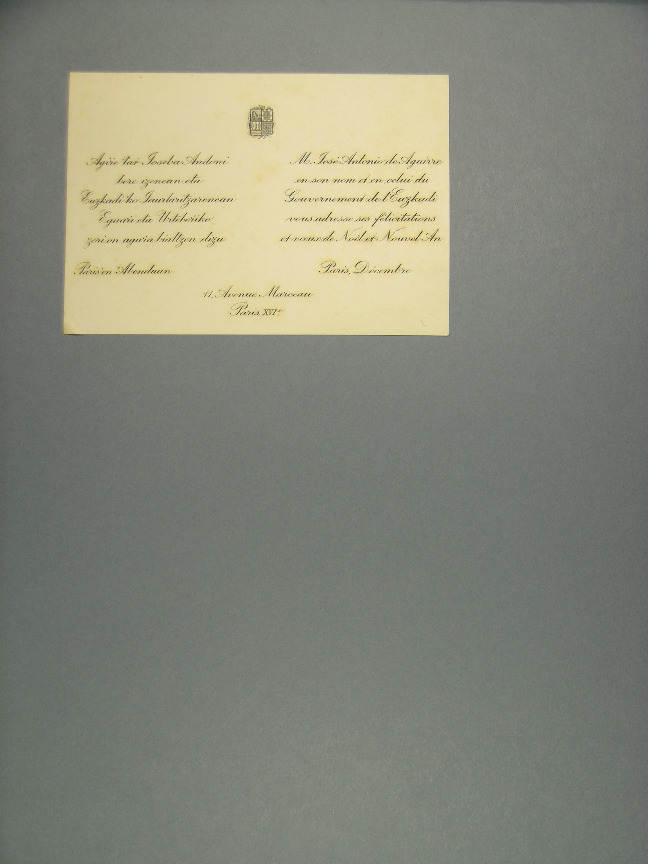 Agiŕe taŕ Joseba Andoni
bere izenean eta
Euzkadi'ko Jaurlaritzarenean
Eguaŕi eta Urtebeŕiko
zori on aguŕa bialtzen dizu
Paris'en Abenduan
M. José Antonio de Aguirre
en son nom et en celui du
Gouvernement de l'Euzkadi
vous adresse ses félicitations
et vœux de Noël et Nouvel An
Paris, Décembre
11, Avenue Marceau
Paris, XVIe